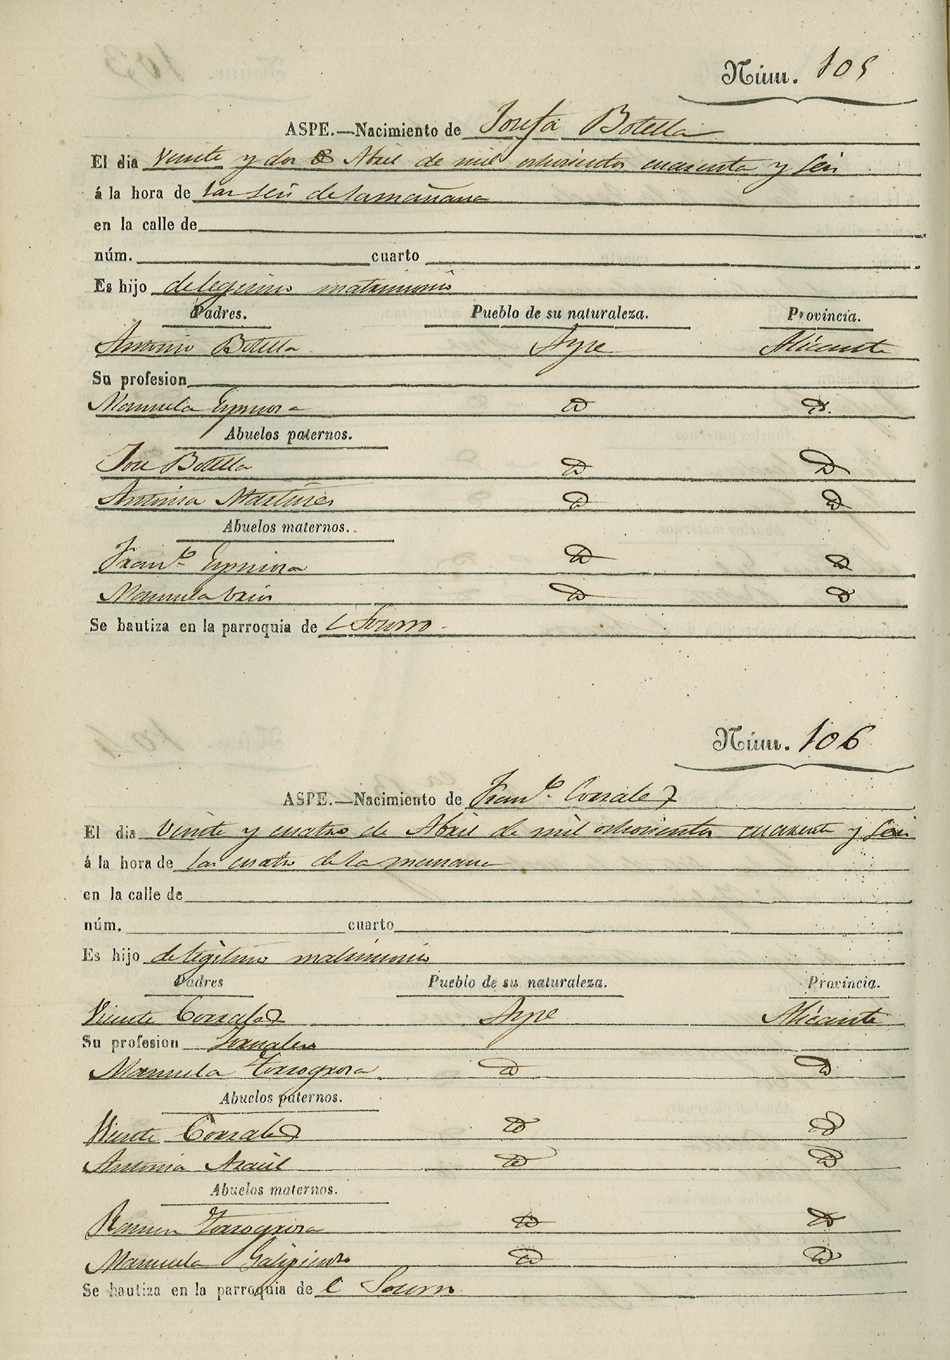 Núm. 105
ASPE.—Nacimiento de Josefa Botella
El dia veinte y dos de Abril de mil ochocientos cuarenta y seis
á la hora de las seis de la mañana
en la calle de
núm. cuarto
Es hijo de legitimo matrimonio
Padres. Pueblo de su naturaleza. Provincia.
Antonio Botella Aspe Alicante
Su profesion
Manuela Espinosa D D
Abuelos paternos.
Jose Botella D D
Antonia Martines D D
Abuelos maternos.
Franco. D D
Manuela D D
Se bautiza en la parroquia de l Socorro
Núm. 106
ASPE.—Nacimiento de Franco. Gonzalez
El dia veinte y cuatro de Abril de mil ochocientos cuarenta y seis
á la hora de las cuatro de la mañana
en la calle de
núm. cuarto
Es hijo de legitimo matrimonio
Padres Pueblo de su naturaleza. Provincia.
Vicente Gonzalez Aspe Alicante
Su profesion Jornalero
Manuela Torregrosa D D
Abuelos paternos.
Vicente Gonzalez D D
Antonia D D
Abuelos maternos.
Ramon Torregrosa D D
Manuela Galipienso D D
Se bautiza en la parroquia de l Socorro